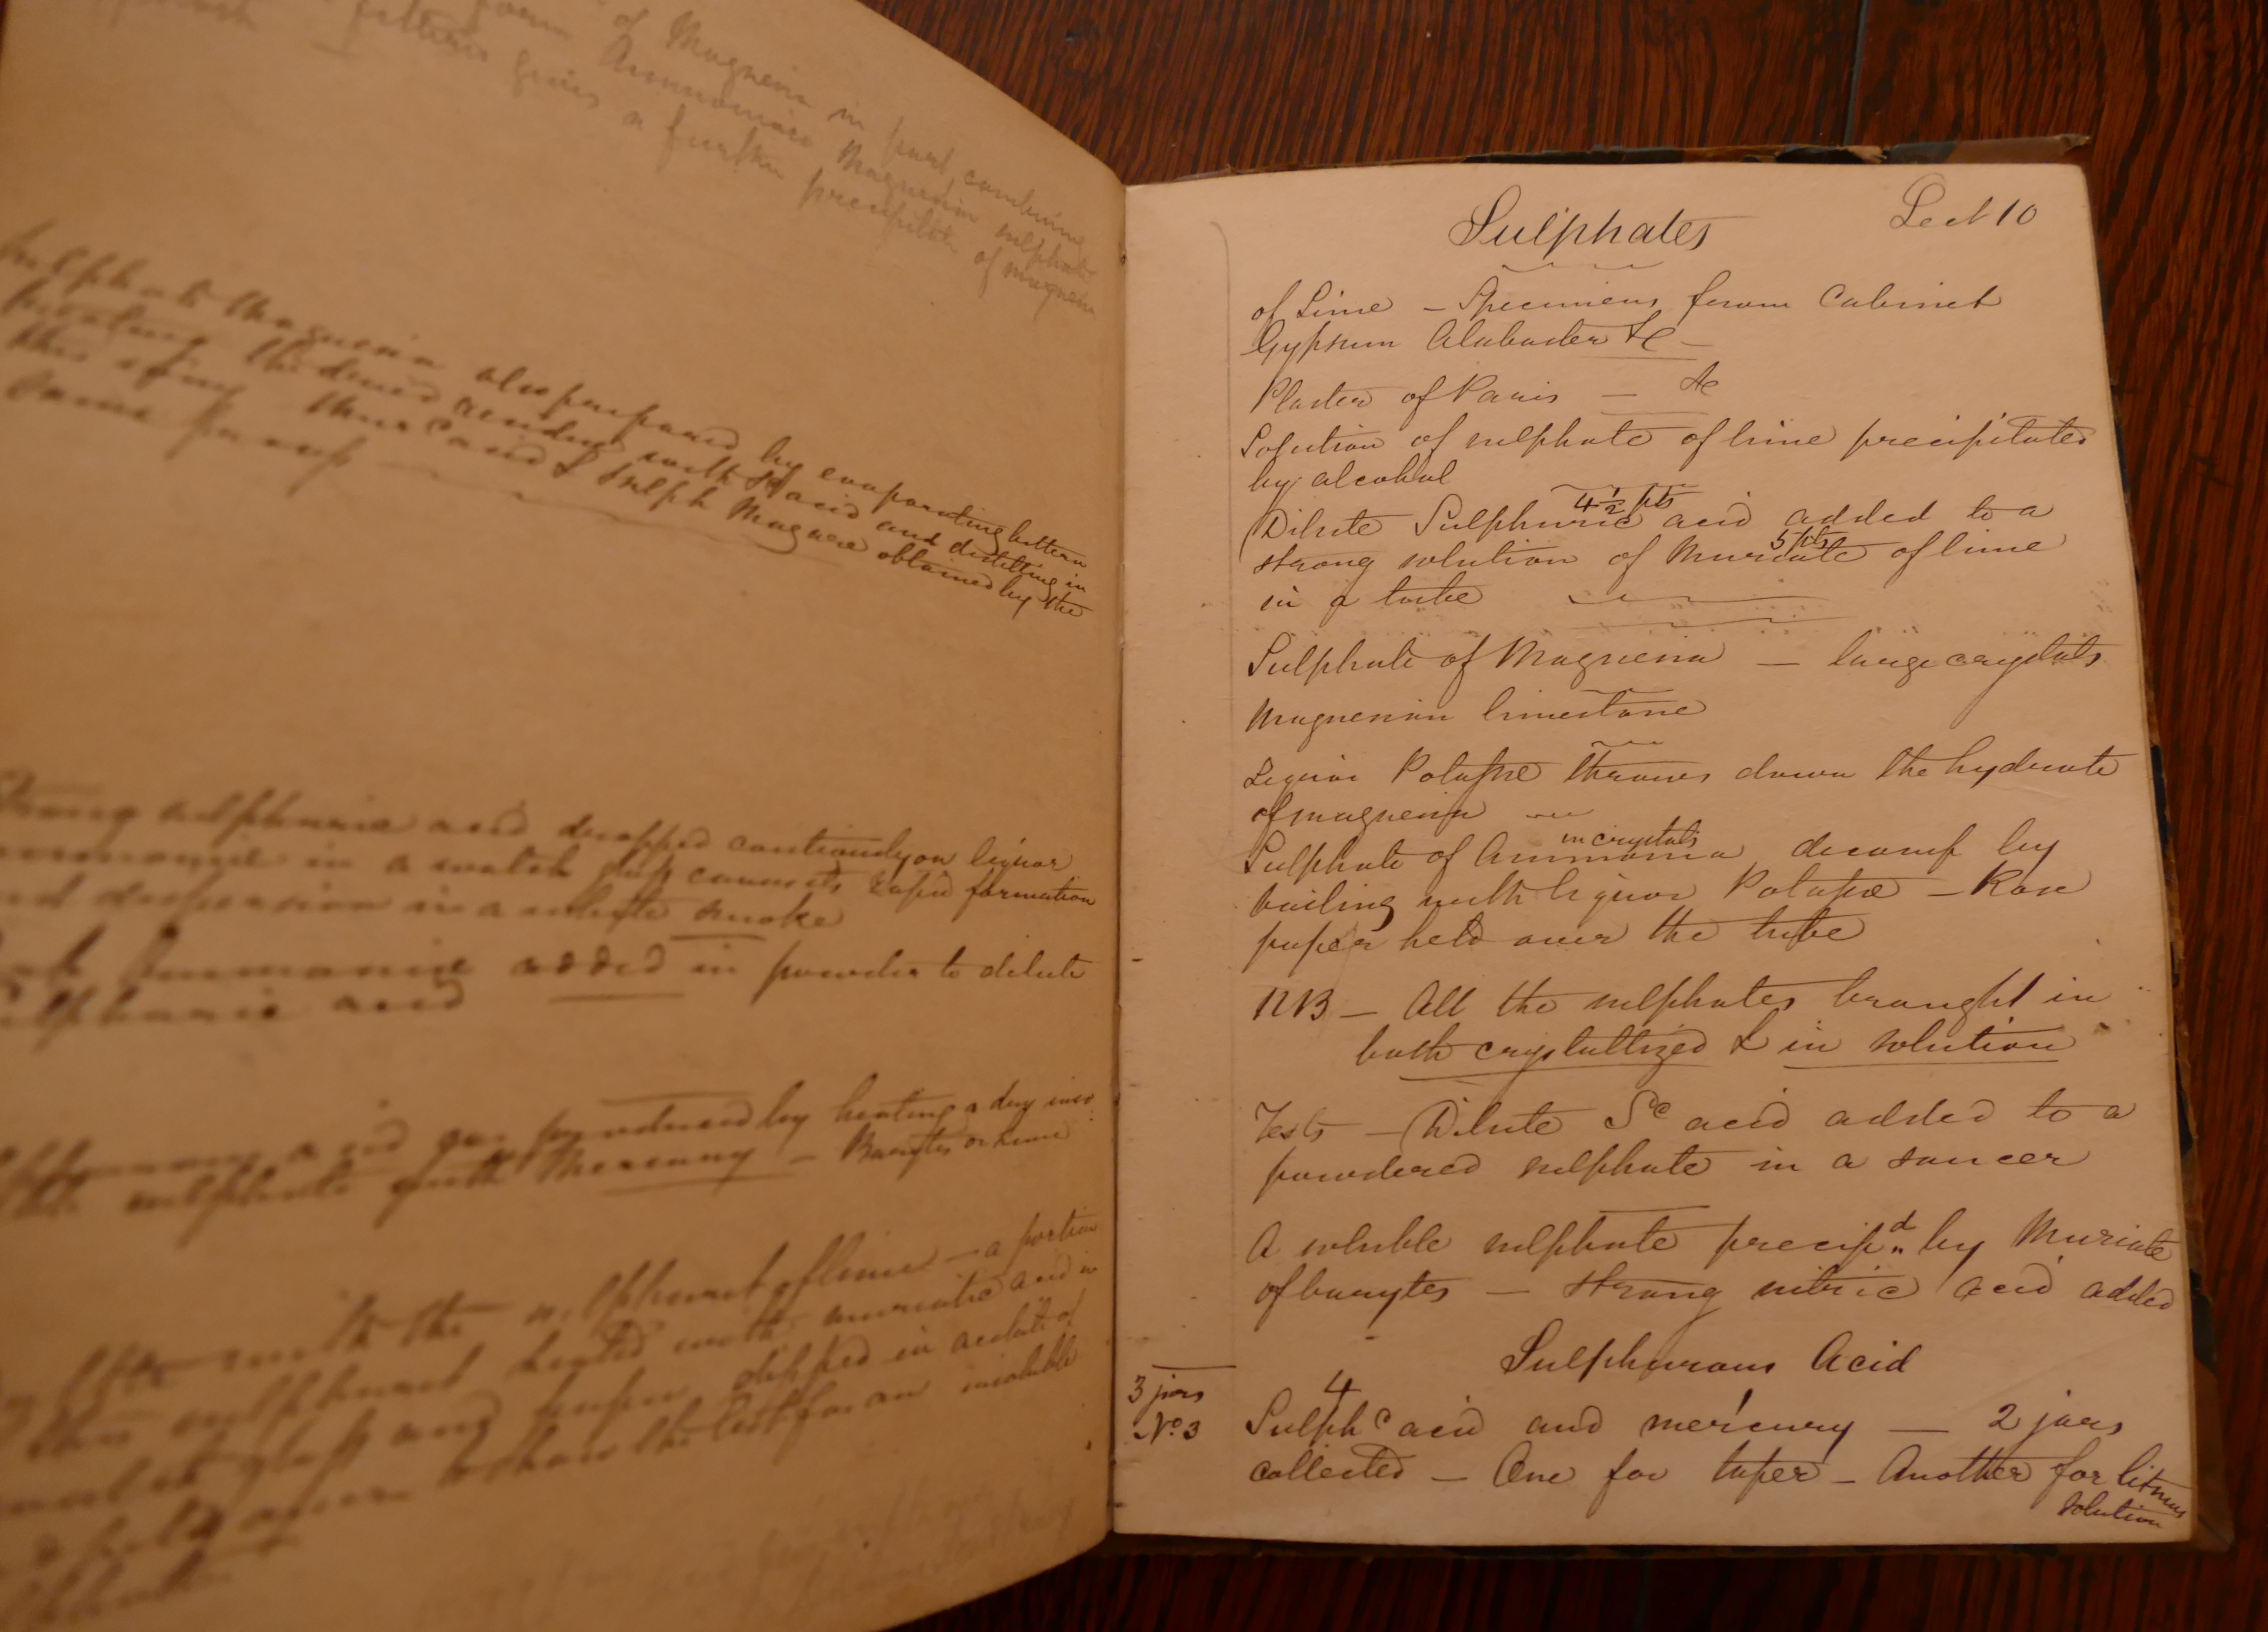 of Magnesia in part combine
Ammoniaco Magnesian sulphate
filtering gives a further precipitate of magnesia
Sulphate Magnesia also prepared by evaporating bittern
the dried residue with acid and distilling in
this spring Mur c acid & Sulph Magnesiae obtained by the
same process
Strong sulphuric acid dropped cautiously on liquor
ammoniae in a watch glass causes its rapid formation
and dispersion in a white smoke
Ammoniae added in powder to dilute
sulphuric acid
acid gas produced by heating a dry
sulphate with Mercury — Barytes or Lime
with the sulphuret of lime — a portion
sulphuret heated with muriatic acid in
watch glass and paper dipped in acetate of
held over to show the test for an insoluble
sulphate
Sulphates Lect 10
of Lime — Specimens from Cabinet
Gypsum Alabaster &c —
Plaster of Paris — &c
Solution of sulphate of lime precipitated
by alcohol
4 1/2 pts
Dilute Sulphuric acid added to a
5 pts
strong solution of Muriate of lime
in a tube
Sulphate of Magnesia — large crystals
Magnesian limestone
Liquor Potassae throws down the hydrate
of magnesia
in crystals
Sulphate of Ammonia decomp by
boiling with liquor Potassae — Rose
paper held over the tube
NB — All the sulphates brought in
both crystallized & in solution
Tests — Dilute Sc acid added to a
powdered sulphate in a saucer
A soluble sulphate precipd by Muriate
of barytes — strong nitric acid added
Sulphurous Acid
3 jars 4
No 3 Sulphc acid and mercury — 2 jars
collected — One for taper — Another for litmus
solution